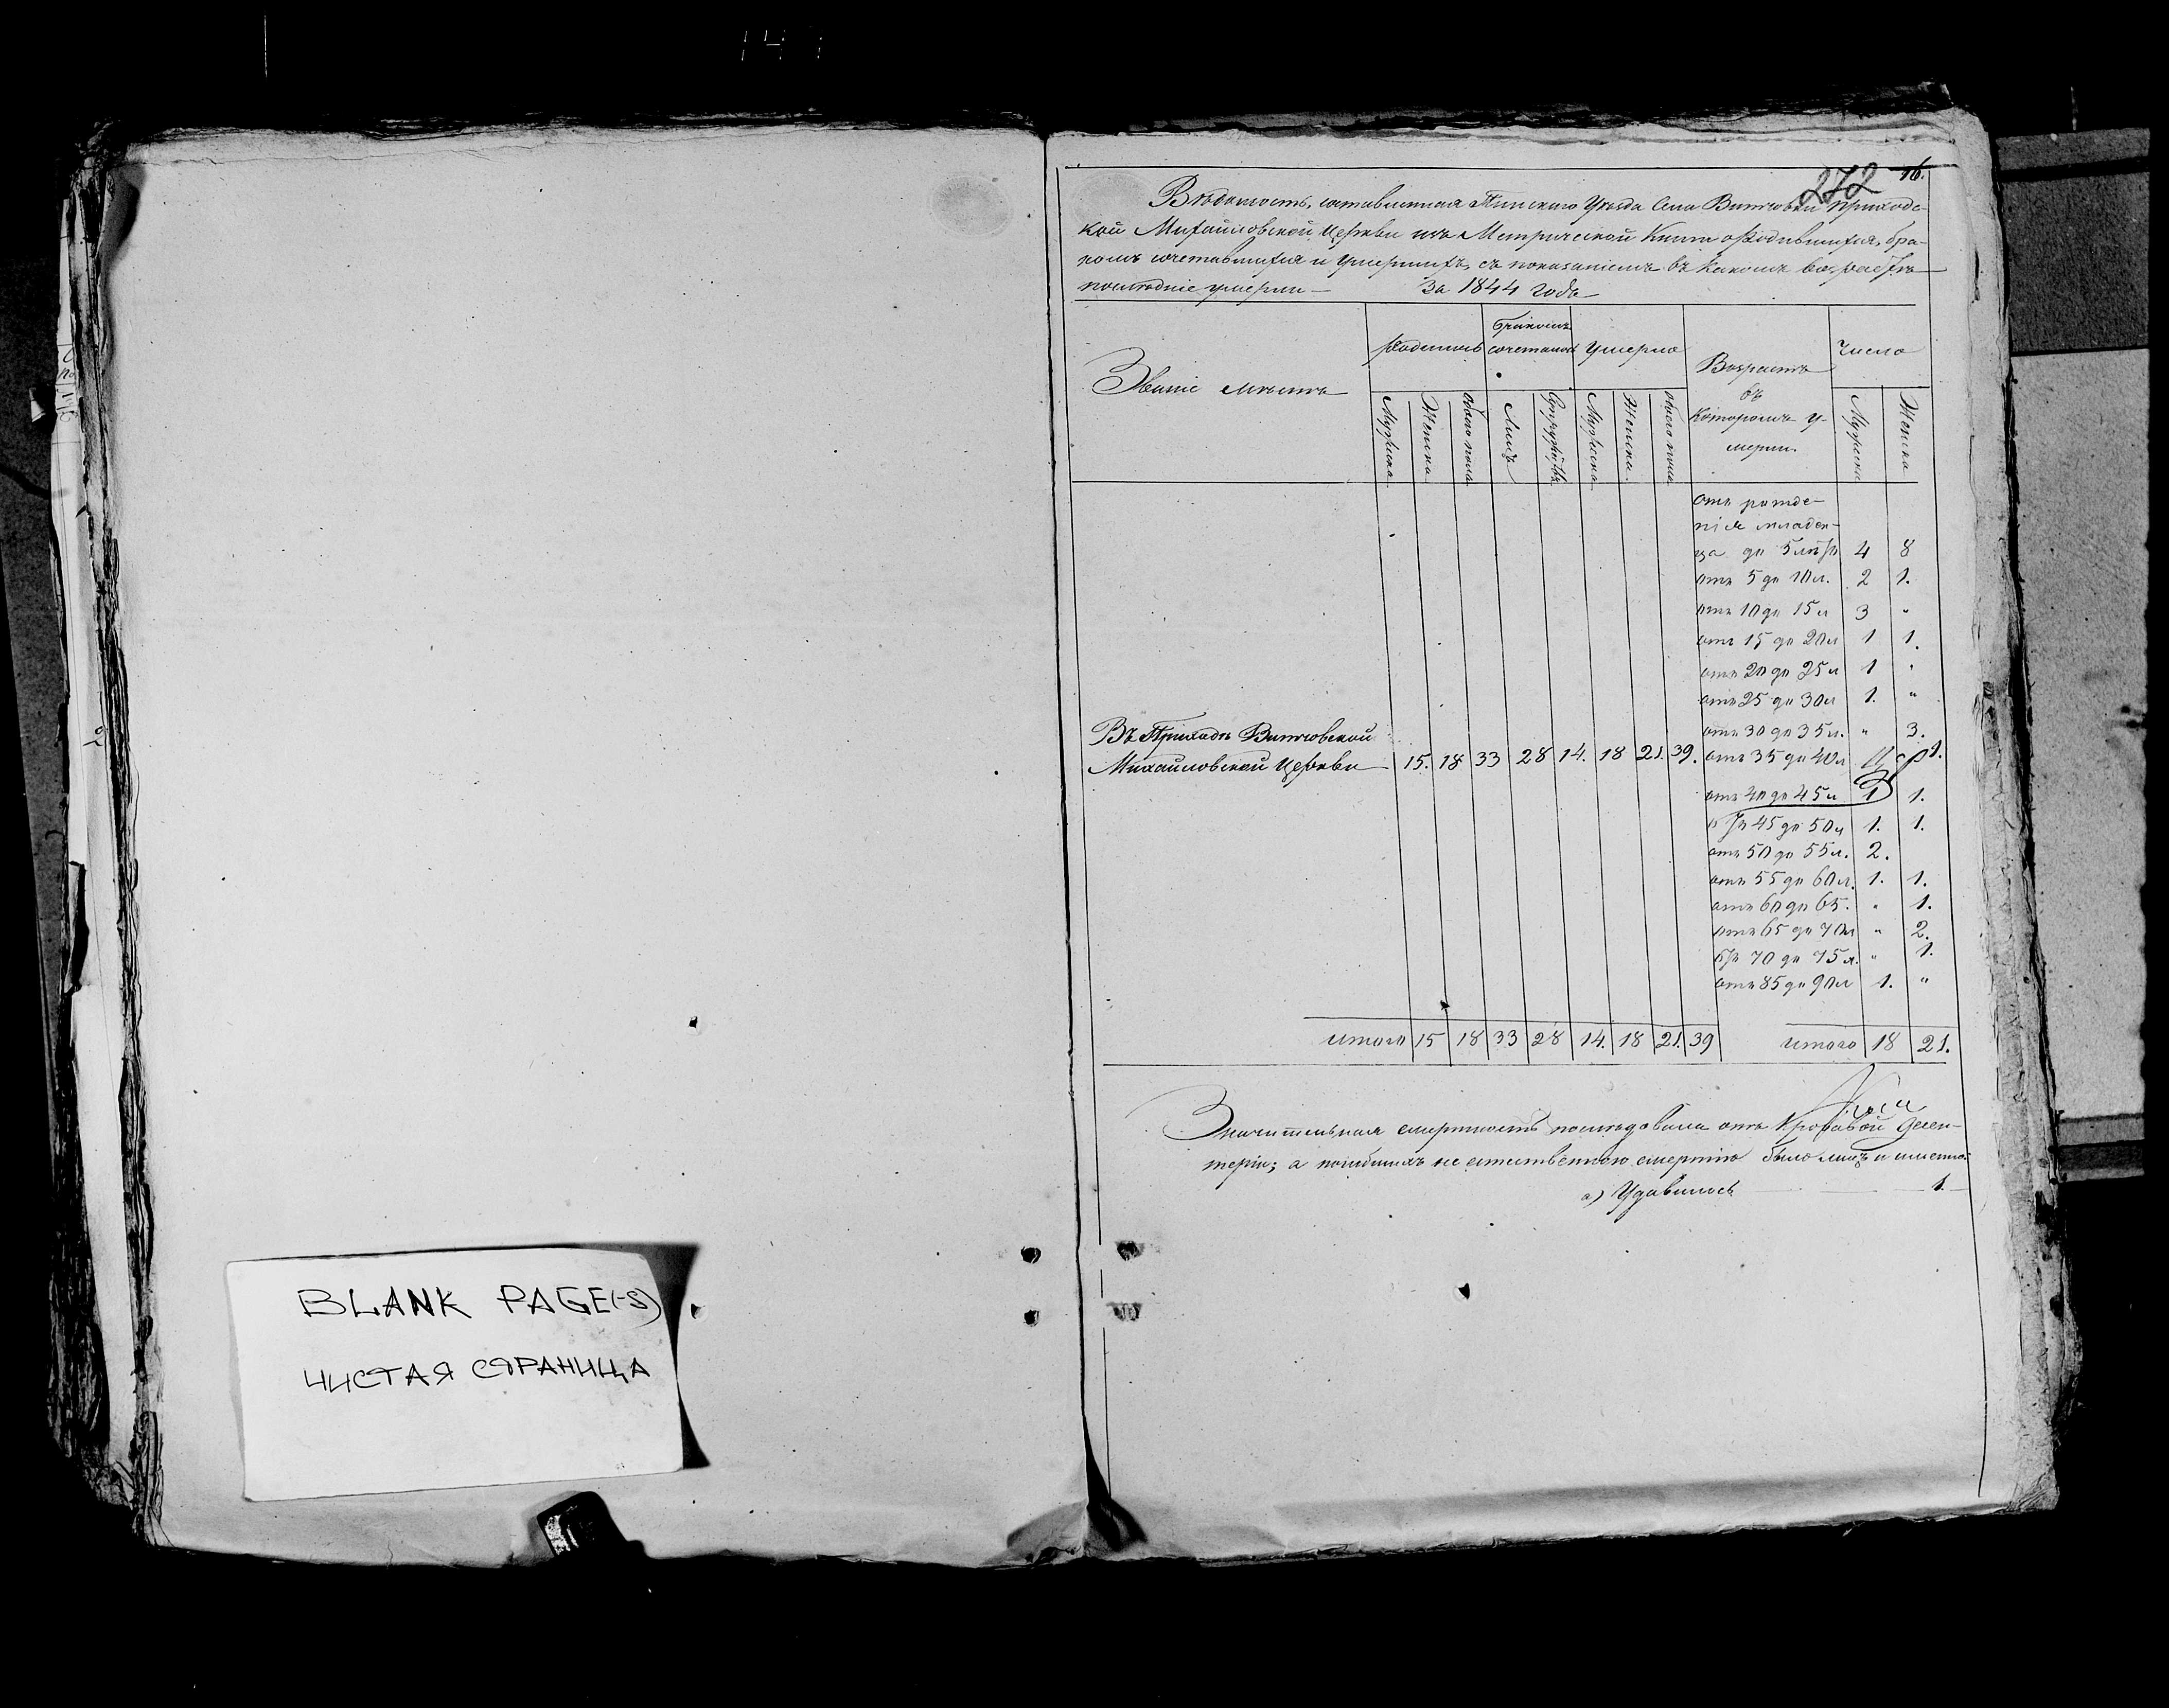 272 16.
Вѣдомость, составленная Пинскаго Уѣзда Села Вичювки приходс-
кой Михайловской Церкви изъ Метрической Книги о Родившихся, бра-
комъ сочетавшихся и Умершихъ, съ показаніемъ въ какомъ возрастѣ
послѣдніе умерли — За 1844 годъ
Званіе мѣстъ
Родилось
бракомъ сочеталось
Умерло
Возрастъ въ которомъ у-
мерли.
Число
Мужеска
Женска
Обоего пола
Лицъ
Супружествъ
Мужеска
Женска
Обоего пола
Мужеска
Женска
отъ рожде-
нія младен-
ца до 5 лѣтъ 4 8
отъ 5 до 10 л. 2 1.
отъ 10 до 15 л 3 "
отъ 15 до 20 л 1 1.
отъ 20 до 25 л 1 "
отъ 25 до 30 л 1. "
отъ 30 до 35 л. " 3.
Въ Приходѣ Вичювской
Михайловской Церкви 15. 18 33 28 14. 18 21. 39. отъ 35 до 40 л 1.
отъ 40 до 45 л 1 1.
отъ 45 до 50 л 1. 1.
отъ 50 до 55 л. 2.
отъ 55 до 60 л. 1. 1.
отъ 60 до 65. " 1.
отъ 65 до 70 л " 2.
отъ 70 до 75 л. " 1.
отъ 85 до 90 л 1. "
итого 15 18 33 28 14. 18 21. 39 итого 18 21.
Значительная смертность послѣдовала отъ Кровавой Десен-
теріи; а погибшихъ не естественною смертію было лицъ и именно:
а) Удавилось 1.
BLANK PAGE(-S)
ЧИСТАЯ СТРАНИЦА